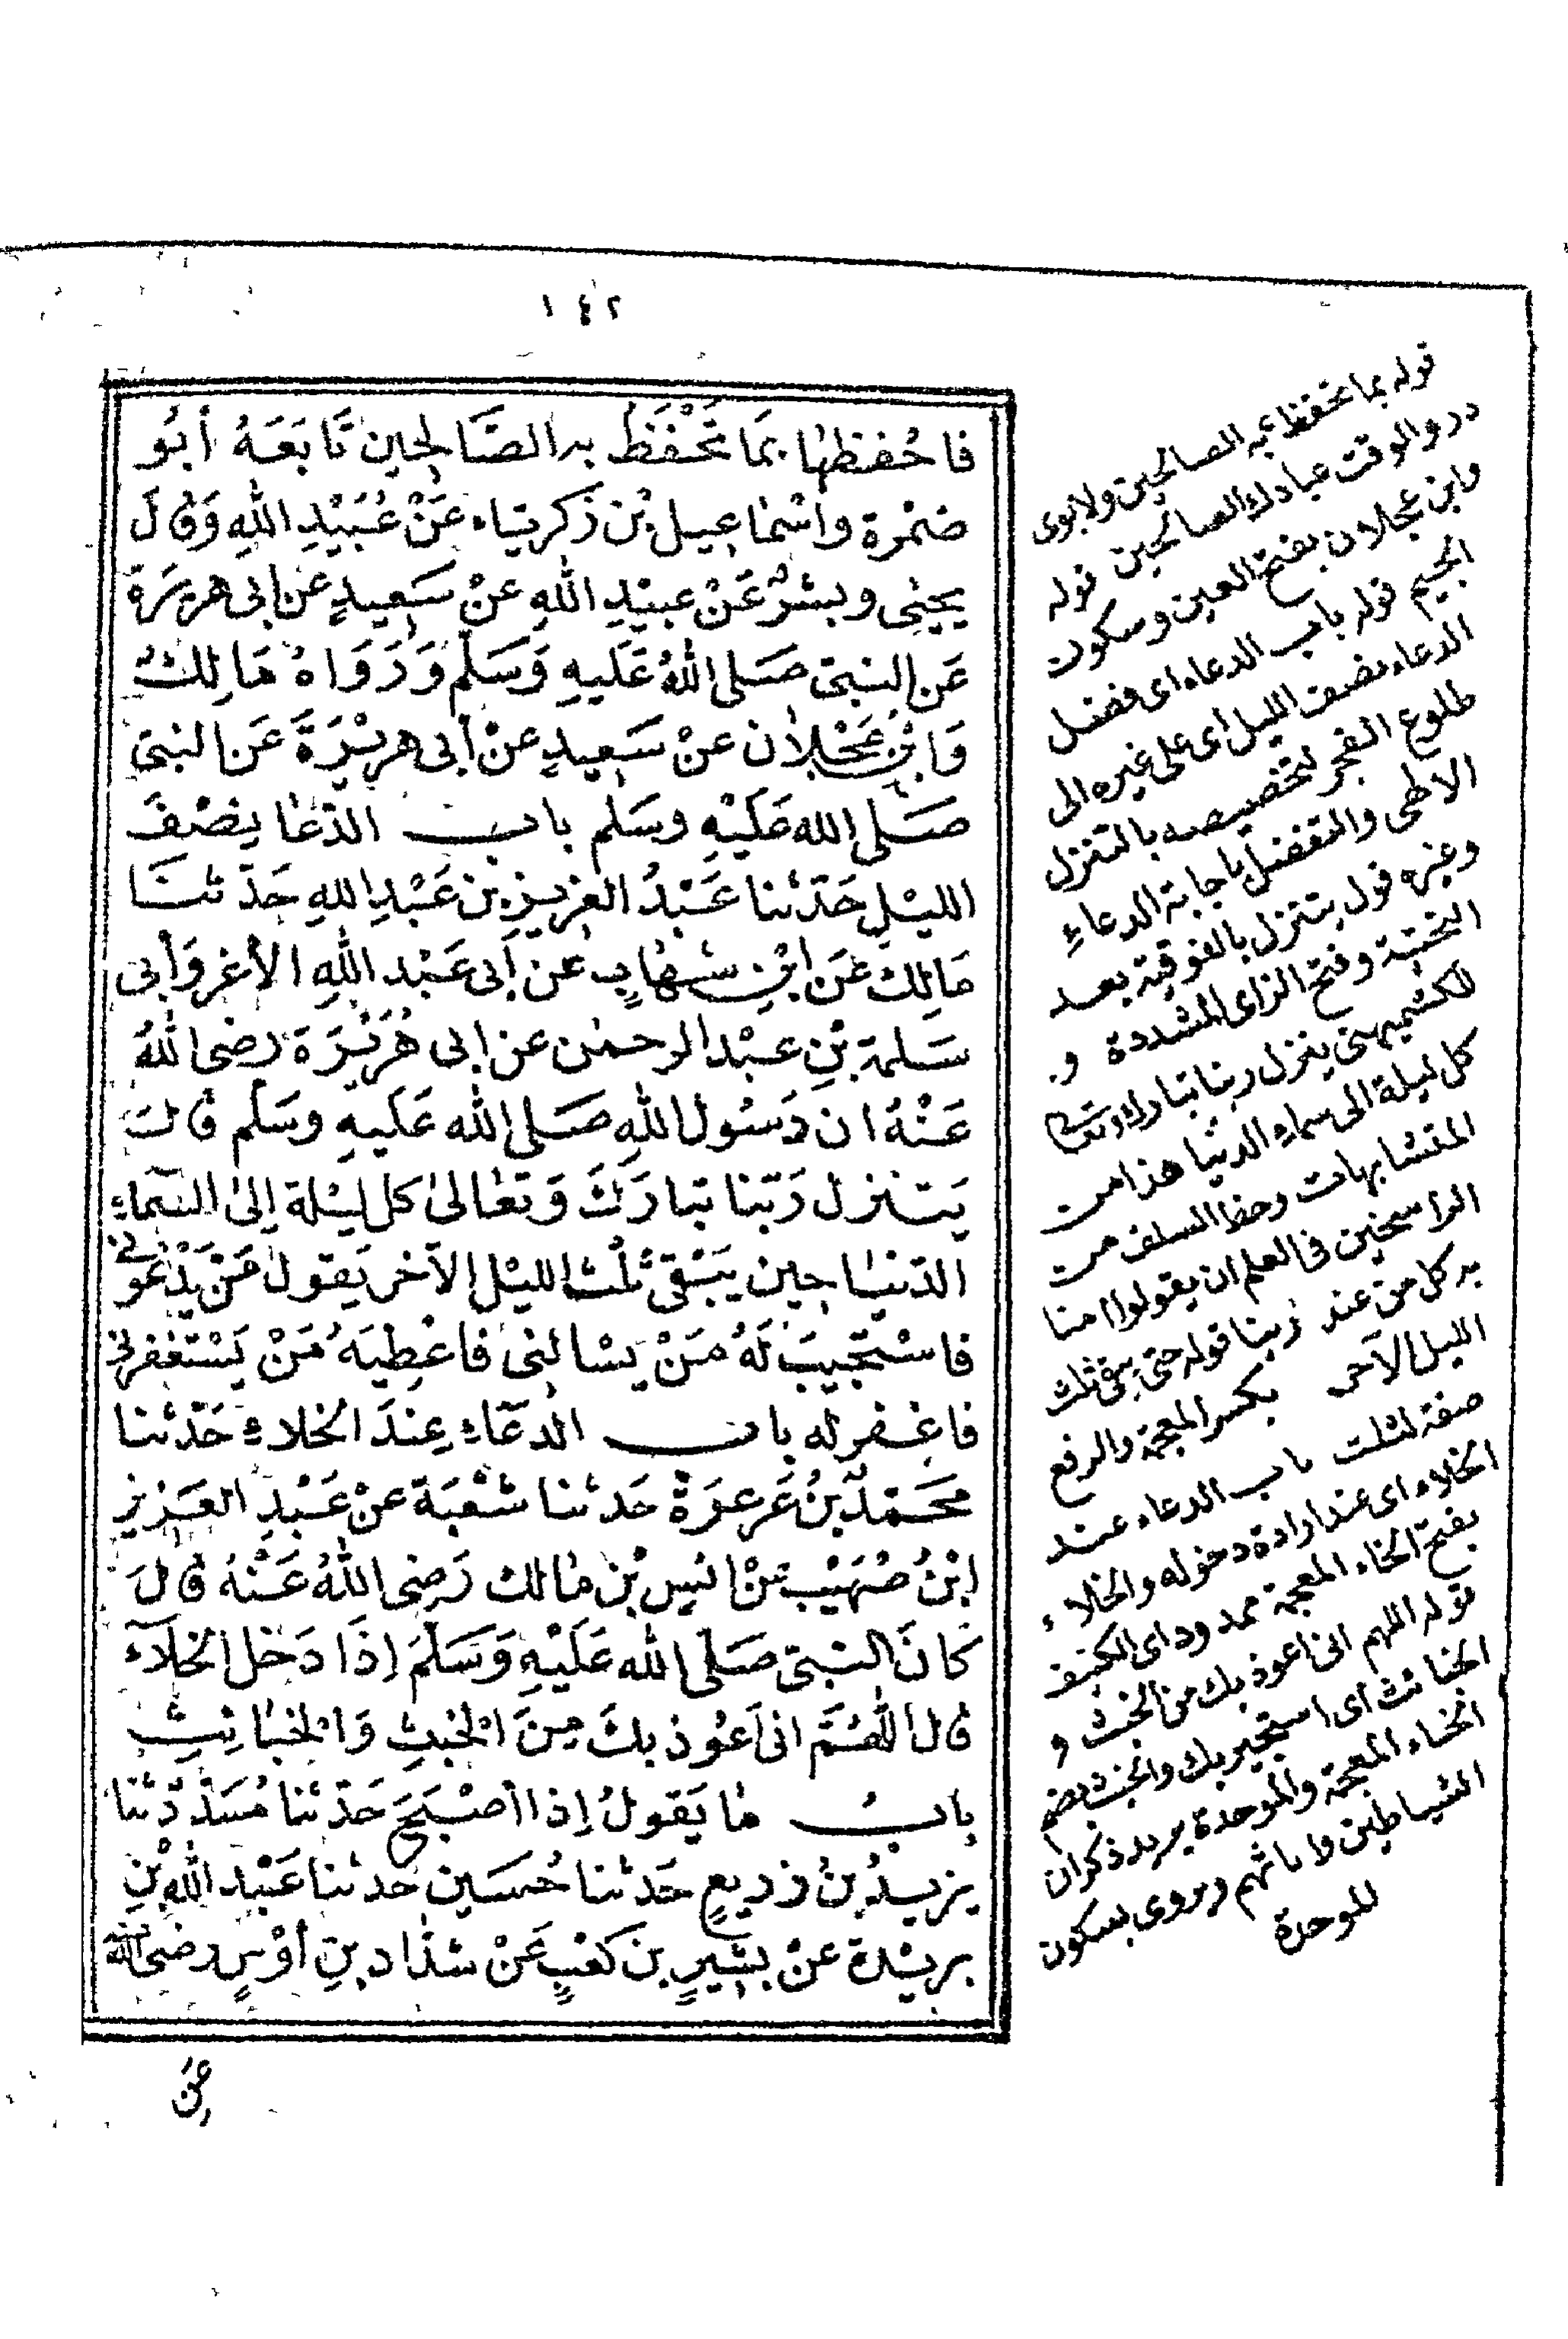 ١٤٢
فاحْفظْهٰا بمَا تَحْفَظُ به الصَّالحِين تَابَعَهُ أبُو
ضمْرة واسْمٰاعيل بْن زَكريّاء عَنْ عُبَيْدِ اللهِ وَقالَ
يحيٰى وبشرٌ عَنْ عبيْدِ اللهِ عنْ سَعِيدٍ عن ابى هريرَة
عَن النبىّ صَلى اللهُ عَليهِ وَسَلم وَرَوَاهُ مَالِكٌ
وَابْن عَجْلٰان عنْ سَعِيدٍ عنْ أبى هريْرَةَ عَن النبىّ
صَلى الله عَليْهِ وسَلم باب الدّعَا نِصْفَ
الليْلِ حَدّثنا عَبْدُ العزيزِ بن عَبْدِ اللهِ حَدّثنَا
مَالِك عَن ابْنِ شهَابٍ عن أبى عَبْد اللهِ الأغر وَأبى
سَلمة بْنِ عبْد الرحمٰن عن ابى هُرَيْرَة رضى اللهُ
عَنْهُ ان رَسُول اللهِ صَلى الله عَليهِ وسَلم قالَ
يَتنزل رَبّنا تبارَكَ وَتعَالىٰ كل ليْلة إلىٰ السّماءِ
الدّنيٰا حِين يَبْقى ثلث الليْل الآخر يَقول مَنْ يَدْعُونى
فاسْتجيبَ لَهُ مَنْ يسْالنى فاعْطِيَهُ مَنْ يَسْتغفرنى
فاغفر له باب الدعَاءِ عِندَ الخلاءِ حَدّثنا
محمّد بنُ عَرعرَة حَدثنا شعْبَة عنْ عَبْدِ العَزيز
ابْنُ صُهَيْب عَنْ انسِ بْن مٰالك رَضِى اللهُ عَنْهُ قالَ
كانَ النبىّ صَلى الله عَليْهِ وَسَلمَ اذَا دَخل الخلَآء
قال اللّهُمَّ انى اَعُوذ بكَ مِنَ الخبثِ وَالخبٰائِثِ
بابُ مٰا يَقولُ إذا أصْبَحَ حَدّثنا مُسَدّد ثنا
يزيدُ بنُ زريعٍ حَدثنا حُسَين حدثنا عَبْد اللهِ بْنِ
بريْدة عنْ بشيرِ بن كعْبٍ عَنْ شدّاد بنِ أوْسٍ رضى الله
عَن
قوله بما تحفظ به الصالحين ولابوى
ذر والوقت عبادك الصالحين قوله
وابن عجلان بفتح العين وسكون
الجيم قوله باب الدعاء اى فضل
الدعاء نصف الليل اى على غيره الى
طلوع الفجر لتخصيصه بالتنزل
الالهى والتفضل باجابة الدعاءِ
وغيره قوله يتنزل بالفوقية بعد
التحتية وفتح الزاى المشددة و.
للكشميهنى ينزل ربنا تبارك وتعالى
كل ليلة الى سماء الدنيا هذا من
المتشابهات وحظ السلف من
الراسخين فى العلم ان يقولوا امنا
به كل من عند ربنا قوله حتى يبقى ثلث
الليل الآخر بكسر المعجمة والرفع
صفة لثلث باب الدعاء عند
الخلاء اى عند ارادة دخوله والخلاء
بفتح الخاء المعجمة ممدود اى الكنيف
قوله اللهم انى اعوذ بك من الخبث و
الخبائث اى استجير بك والخبث بضم
الخاء المعجمة والموحدة يريد ذكران
الشياطين واناثهم ويروى بسكون
للموحدة